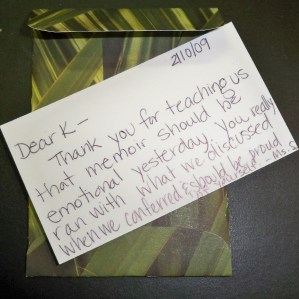 2/10/09
Dear K-
Thank you for teaching us
that memoir should be
emotional yesterday. You really
ran with what we discussed
when we conferred & should be proud
of yourself. -Ms. S